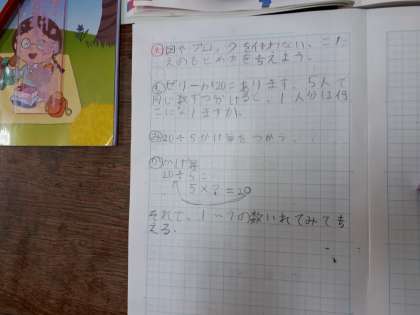 図やブロックを使わない、こた
えのもとめ方を考えよう。
ゼリーが20こあります。5人で
同じ数ずつ分けると、1人分は何
こになりますか。
20÷5かけ算をつかう。
かけ算
20÷5=
5×?=20
それで、1〜9の数いれてみて考
える。